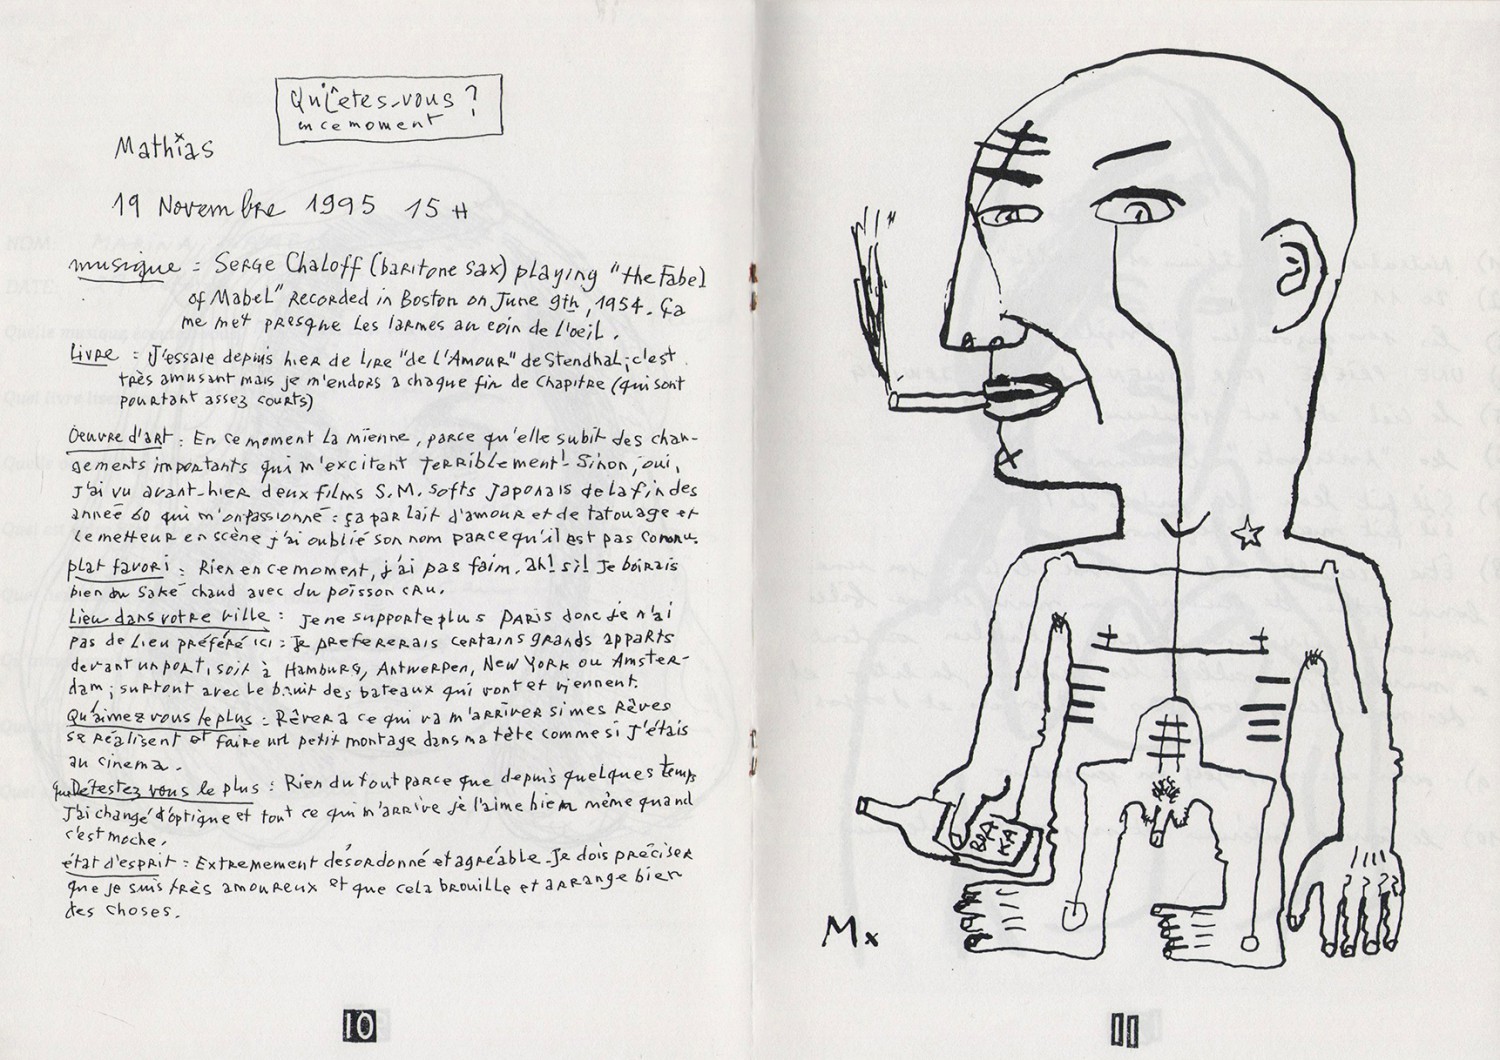 Qui êtes-vous ?
en ce moment
Mathias
19 Novembre 1995 15 H
musique : Serge Chaloff (baritone sax) playing "the Fabel
of Mabel" Recorded in Boston on June 9th, 1954. Ça
me met presque les larmes au coin de l'oeil.
Livre : J'essaie depuis hier de lire "de l'Amour" de Stendhal ; c'est
très amusant mais je m'endors a chaque fin de chapitre (qui sont
pourtant assez courts)
Oeuvre d'art : En ce moment la mienne, parce qu'elle subit des chan-
gements importants qui m'excitent terriblement ! Sinon, oui,
J'ai vu avant-hier deux films S.M. softs Japonais de la fin des
année 60 qui m'on passionné : ça parlait d'amour et de tatouage et
le metteur en scène j'ai oublié son nom parce qu'il est pas connu.
plat favori : Rien en ce moment, j'ai pas faim. ah ! si ! Je boirais
bien du Saké chaud avec du poisson cru.
Lieu dans votre ville : je ne supporte plus Paris donc je n'ai
pas de lieu préféré ici : Je prefererais certains grands apparts
devant un port, soit à Hamburg, Antwerpen, New York ou Amster-
dam ; surtout avec le bruit des bateaux qui vont et viennent.
Qu'aimez vous le plus : Rêver a ce qui va m'arriver si mes Rêves
se réalisent et faire un petit montage dans ma tête comme si j'étais
au cinema.
que Détestez vous le plus : Rien du tout parce que depuis quelques temps
J'ai changé d'optique et tout ce qui m'arrive je l'aime bien même quand
c'est moche.
état d'esprit : Extremement désordonné et agréable. Je dois préciser
que je suis très amoureux et que cela brouille et arrange bien
des choses.
10
Mx
11